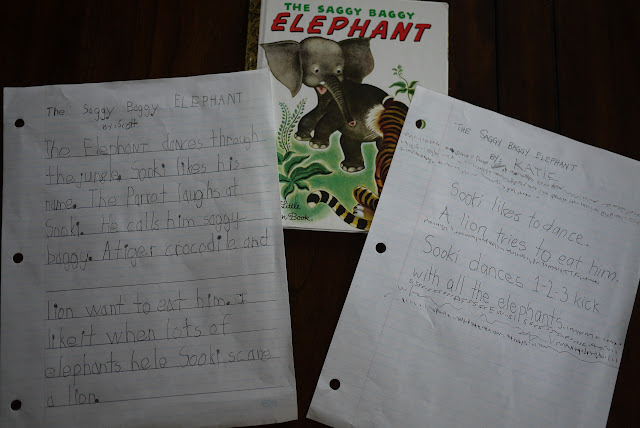 THE SAGGY BAGGY
ELEPHANT
Little
n Book
The Saggy Baggy ELEPHANT
The Elephant dances through
the jungle. Sooki likes his
name. The Parrot laughs at
Sooki. He calls him saggy
baggy. A tiger crocodile and
lion want to eat him. I
like it when lots of
elephants help Sooki scare
a lion.
THE SAGGY BAGGY ELEPHANT
By KATIE
Sooki likes to dance.
A lion tries to eat him.
Sooki dances 1-2-3 kick
with all the elephants.